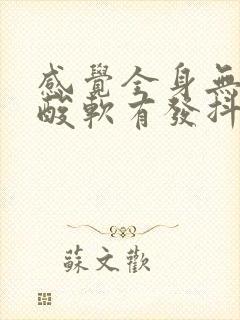 感覺全身無
酸軟有發抖
蘇文歡